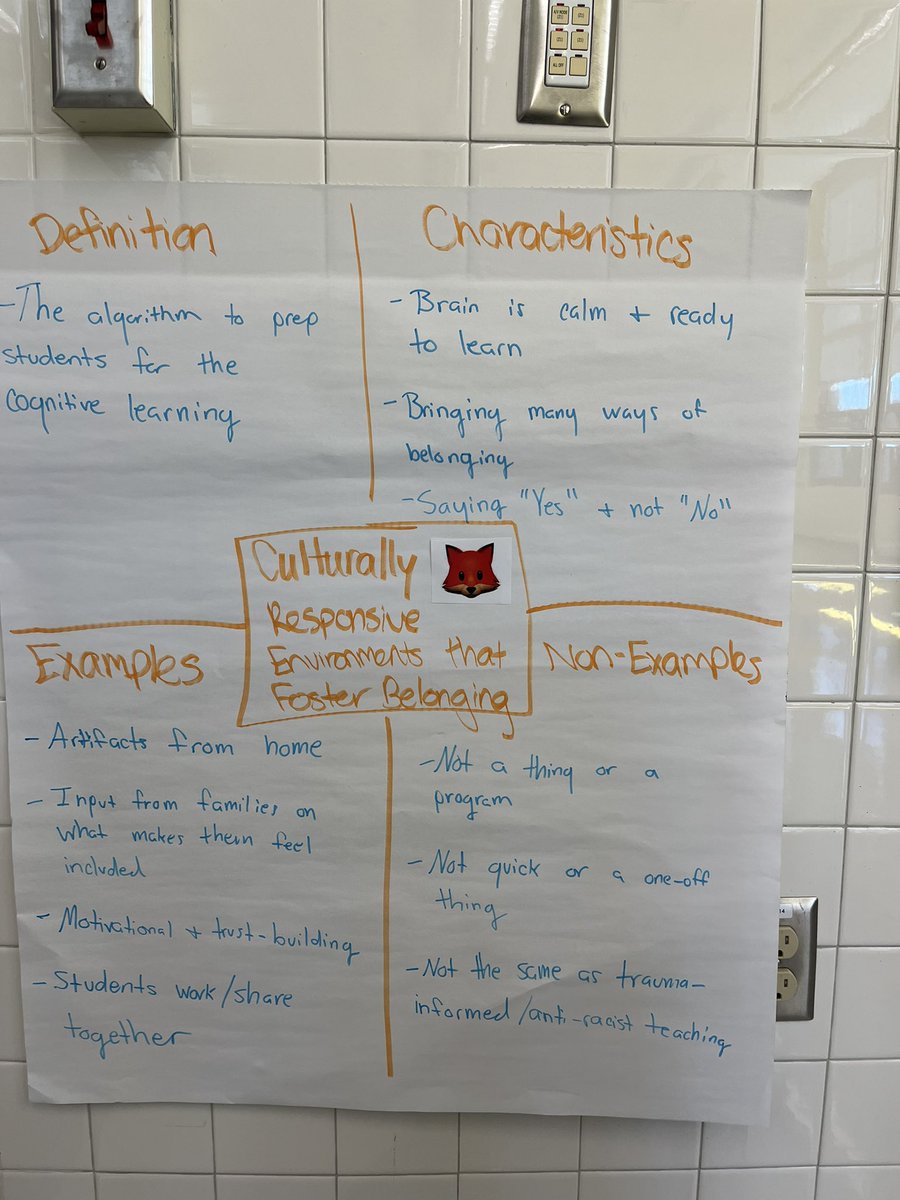 Definition
-The algorithm to prep
students for the
cognitive learning
Characteristics
- Brain is calm + ready
to learn
- Bringing many ways of
belonging
- Saying "Yes" + not "No"
Culturally
Responsive
Environments that
Foster Belonging
Examples
- Artifacts from home
- Input from families on
what makes them feel
included
- Motivational + trust-building
- Students work/share
together
Non-Examples
-Not a thing or a
program
- Not quick or a one-off
thing
-Not the same as trauma-
informed/anti-racist teaching
ALL OFF